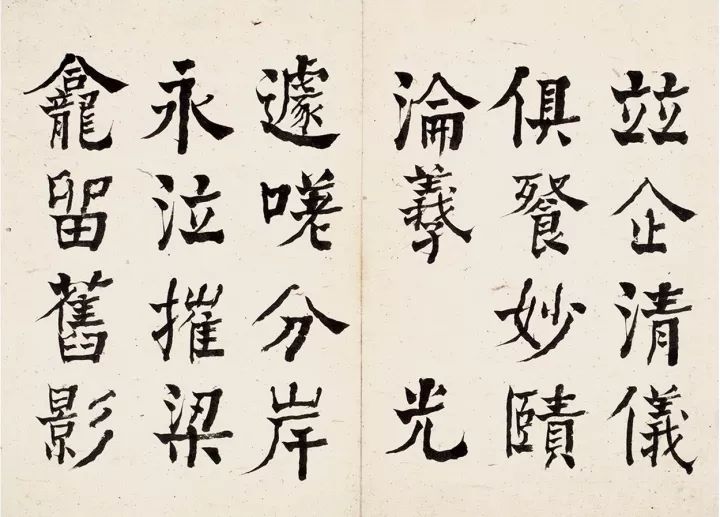 竝企清儀
俱餐妙賾
淪羲 光
遽嗟分岸
永泣摧梁
龕留舊影